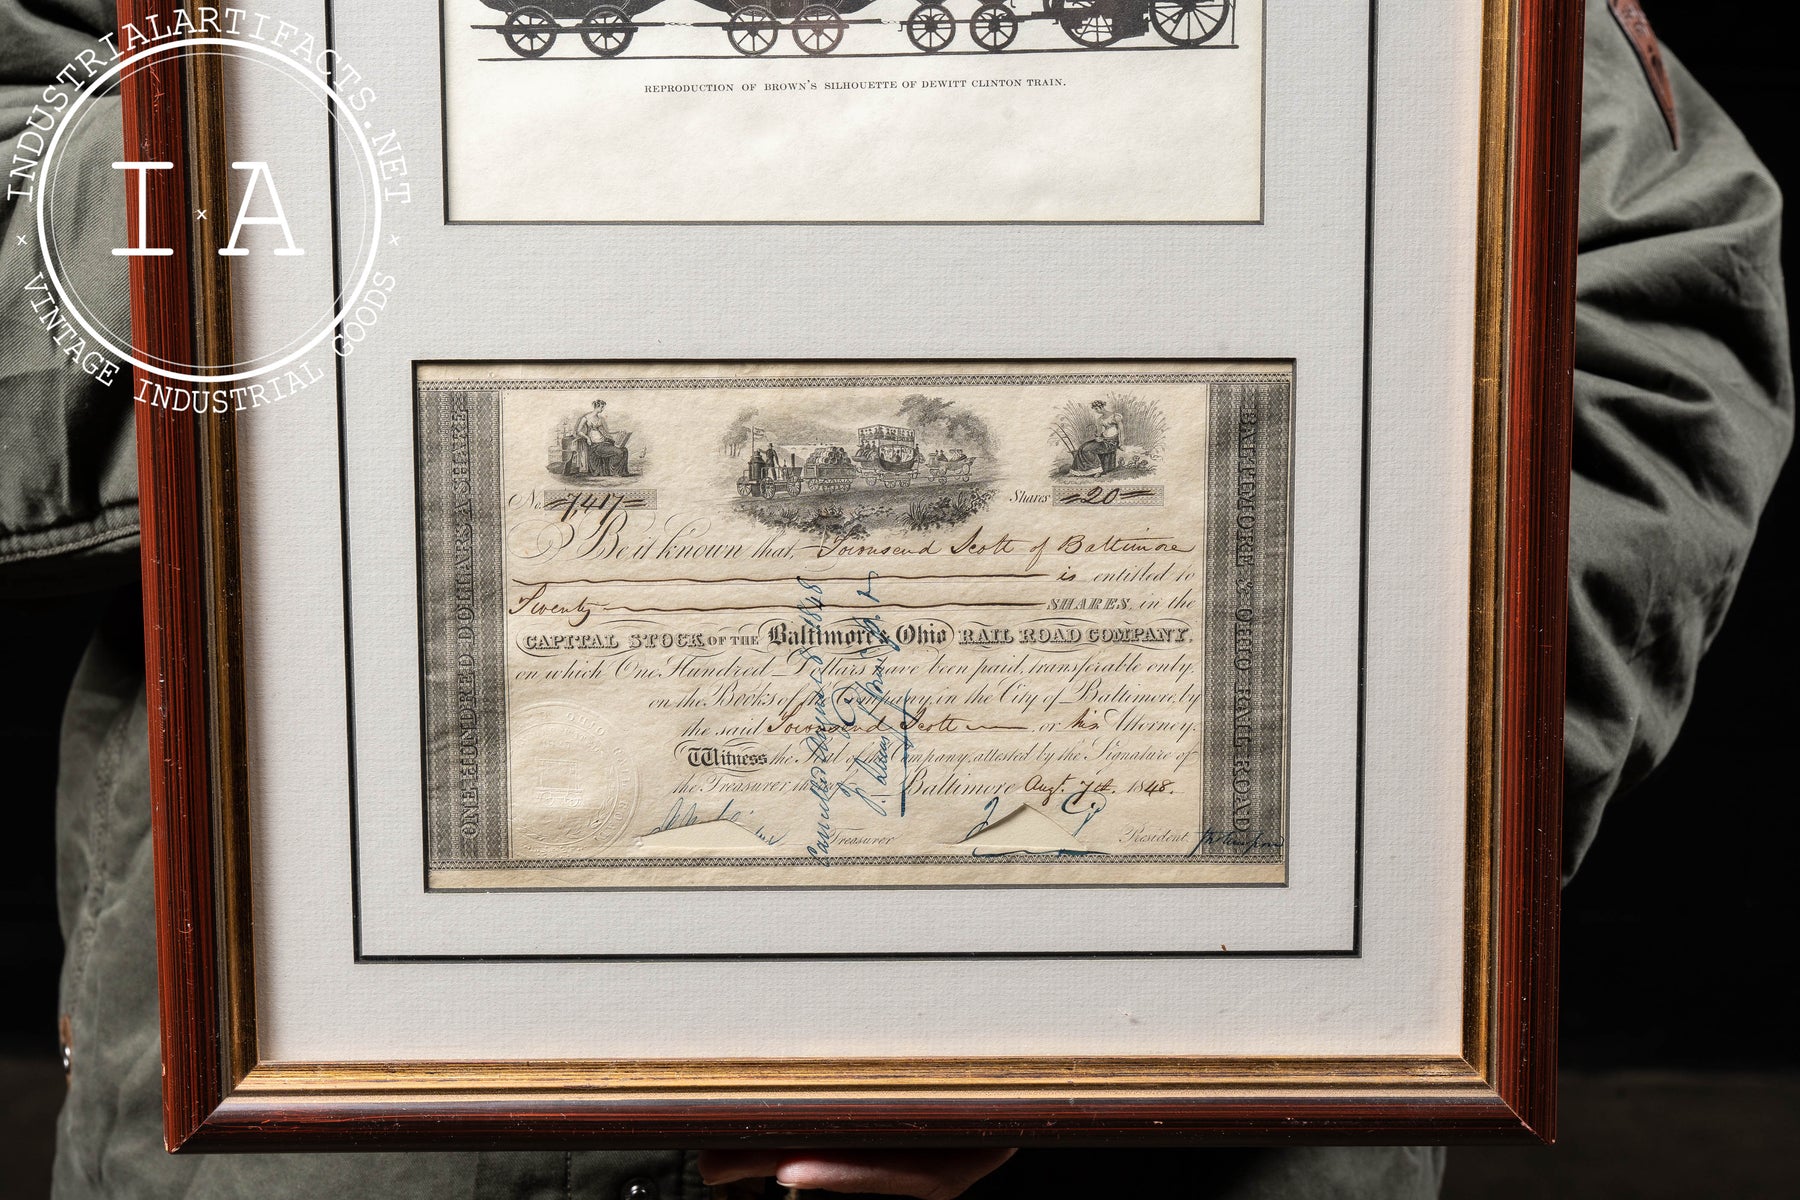 INDUSTRIALARTIFACTS.NET
I x A
VINTAGE INDUSTRIAL GOODS
REPRODUCTION OF BROWN'S SILHOUETTE OF DEWITT CLINTON TRAIN.
ONE HUNDRED DOLLARS A SHARE
BALTIMORE & OHIO RAIL ROAD
No. 7,417 Shares 20
Be it known that Townsend Scott of Baltimore
is entitled to
Twenty SHARES, in the
CAPITAL STOCK OF THE Baltimore & Ohio RAIL ROAD COMPANY,
on which One Hundred Dollars have been paid, transferable only,
on the Books of the Company, in the City of Baltimore, by
the said Townsend Scott or his Attorney.
Witness the Seal of the Company, attested by the Signature of
the Treasurer thereof Baltimore Augt. 7th. 1848.
Treasurer President
Cancelled August 8 1848